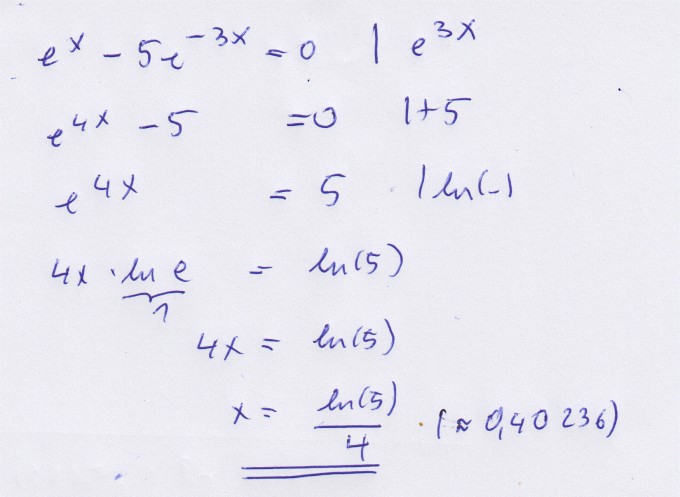 e^x - 5e^{-3x} = 0 | e^{3x}
e^{4x} - 5 = 0 | +5
e^{4x} = 5 | ln(-)
4x · ln e = ln(5)
1
4x = ln(5)
x = ln(5)/4 · (≈ 0,40236)